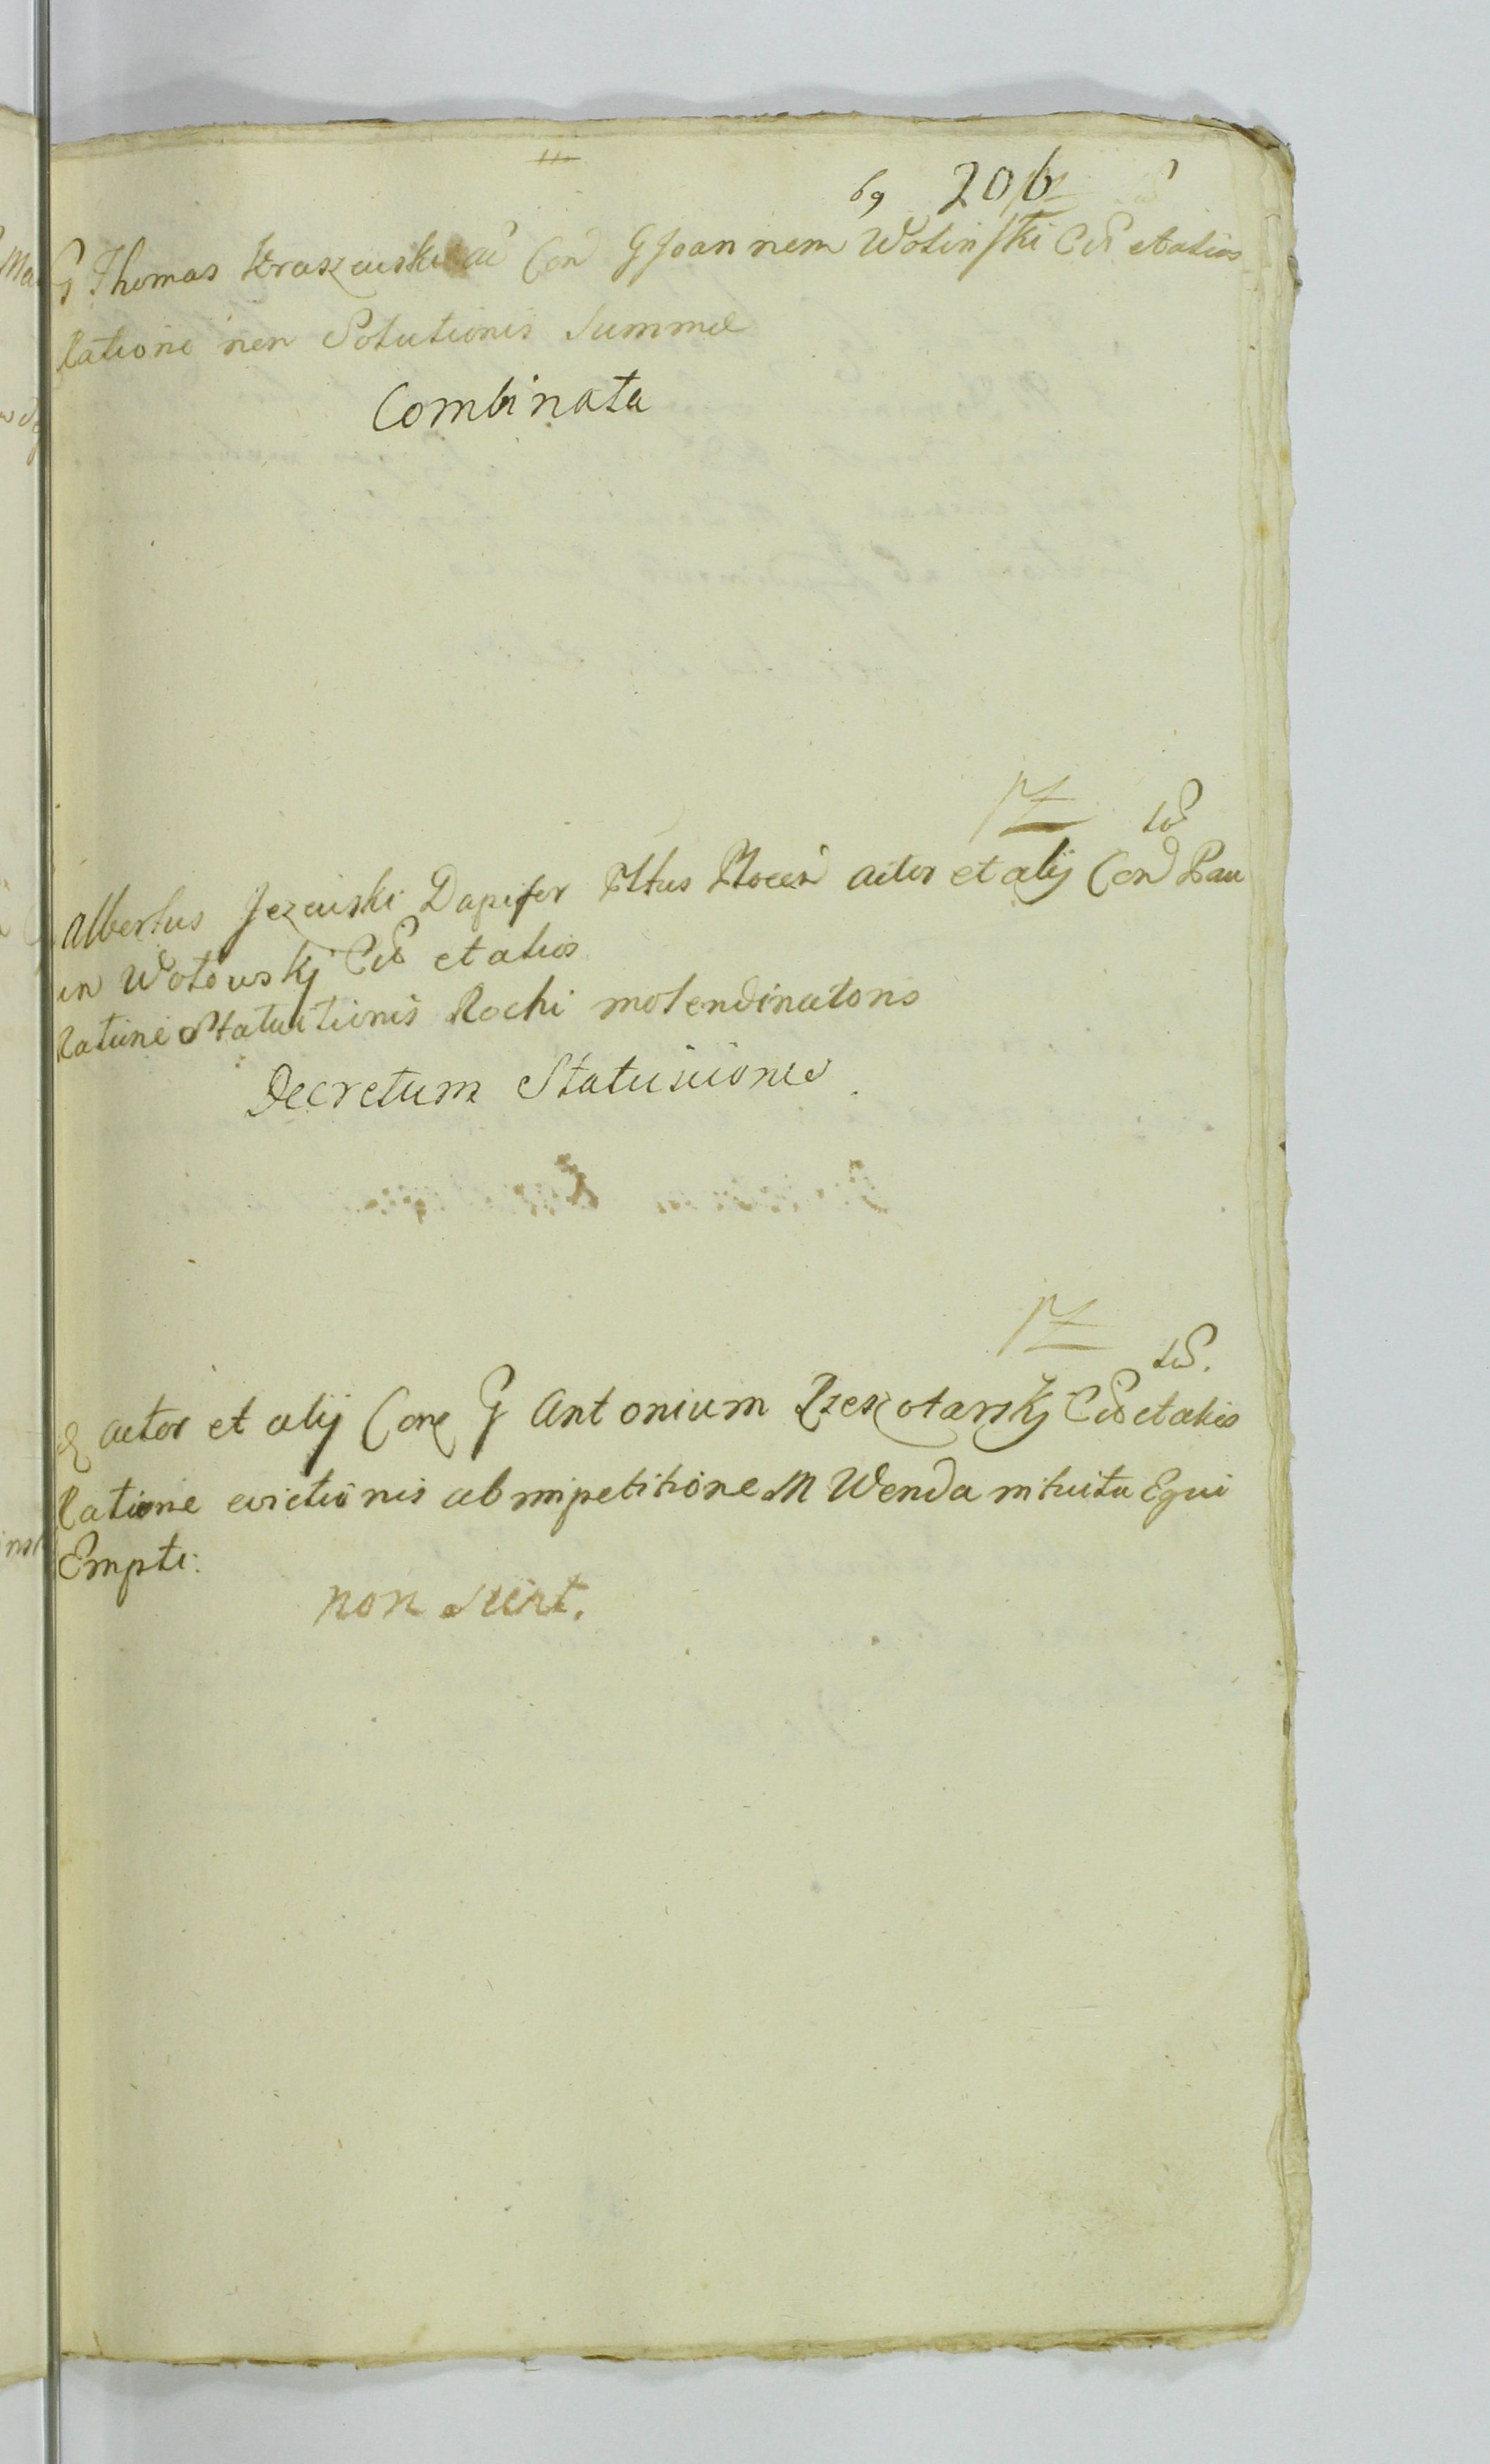 69 206
G Thomas Kraszewski ac Con G Joannem Wolinski et alios
Ratione non Solutionis Summe
Combinata
Albertus Jezewski Dapifer actor et alij Con Pau
Wotowskj et alios
Ratione Statuitionis Rochi molendinatoris
Decretum Statuicionis
actor et alij Con G Antonium Rzeszotarskj et alios
Ratione evictionis ab impetitione M Wenda intuitu Equi
Empti:
non sunt.